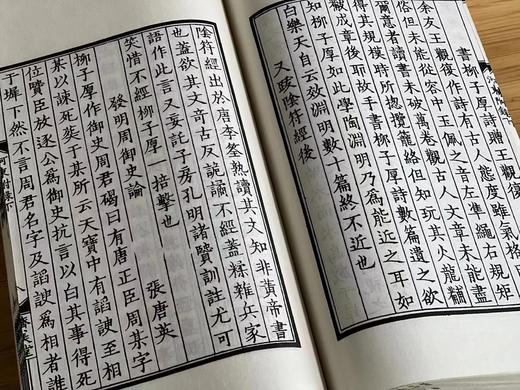 書柳子厚詩贈王觀復
余友王觀復作詩有古人態度雖氣
俗但未能從容中玉佩之音左準繩右規矩
爾意者讀書未破萬卷觀古人文章未能盡
得其規模時所摠攬籠絡但知玩其火龍黼
黻成章後耶故手書柳子厚詩數篇遺之欲
知柳子厚如此學陶淵明乃爲能近之耳如
白樂天自云效淵明數十篇終不近也
又跋陰符經後
陰符經出於唐李筌熟讀其文知非黃帝書
也蓋欲其文奇古反詭譎不經蓋糅雜兵家
語作此言又妄託子房孔明諸賢訓註尤可
笑惜不經柳子厚一掊擊也
發明周御史論 張唐英
柳子厚作御史周君碣曰有唐正臣周某字
某以諫死奘于某所云天寶中有諂諛至相
位贊臣放逐公爲御史抗言以白其事得死
于墀下然不言周君名字及諂諛爲相者誰